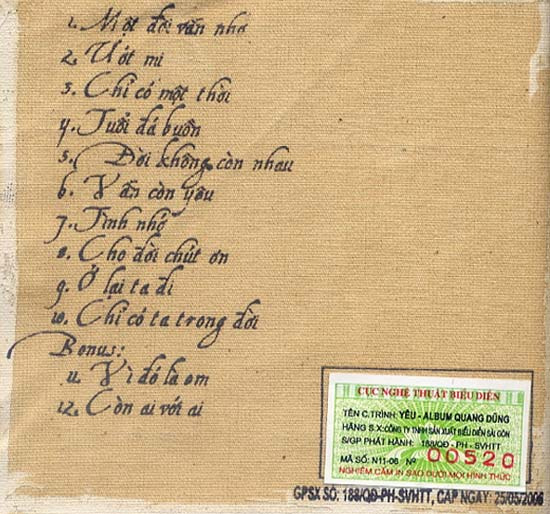 1. Một đời vẫn nhớ
2. Ướt mi
3. Chỉ có một thời
4. Tuổi đá buồn
5. Đời không còn nhau
6. Vẫn còn yêu
7. Tình nhớ
8. Cho đời chút ơn
9. Ở lại ta đi
10. Chỉ có ta trong đời
Bonus:
11. Vì đó là em
12. Còn ai với ai
CỤC NGHỆ THUẬT BIỂU DIỄN
TÊN C.TRÌNH: YÊU - ALBUM QUANG DŨNG
HÃNG S.X: CÔNG TY TNHH SẢN XUẤT BIỂU DIỄN SÀI GÒN
S/GP PHÁT HÀNH: 188/QĐ - PH - SVHTT
MÃ SỐ: N11-06 Nº 00520
NGHIÊM CẤM IN SAO DƯỚI MỌI HÌNH THỨC
GPSX SỐ: 188/QĐ-PH-SVHTT, CẤP NGÀY: 25/05/2006